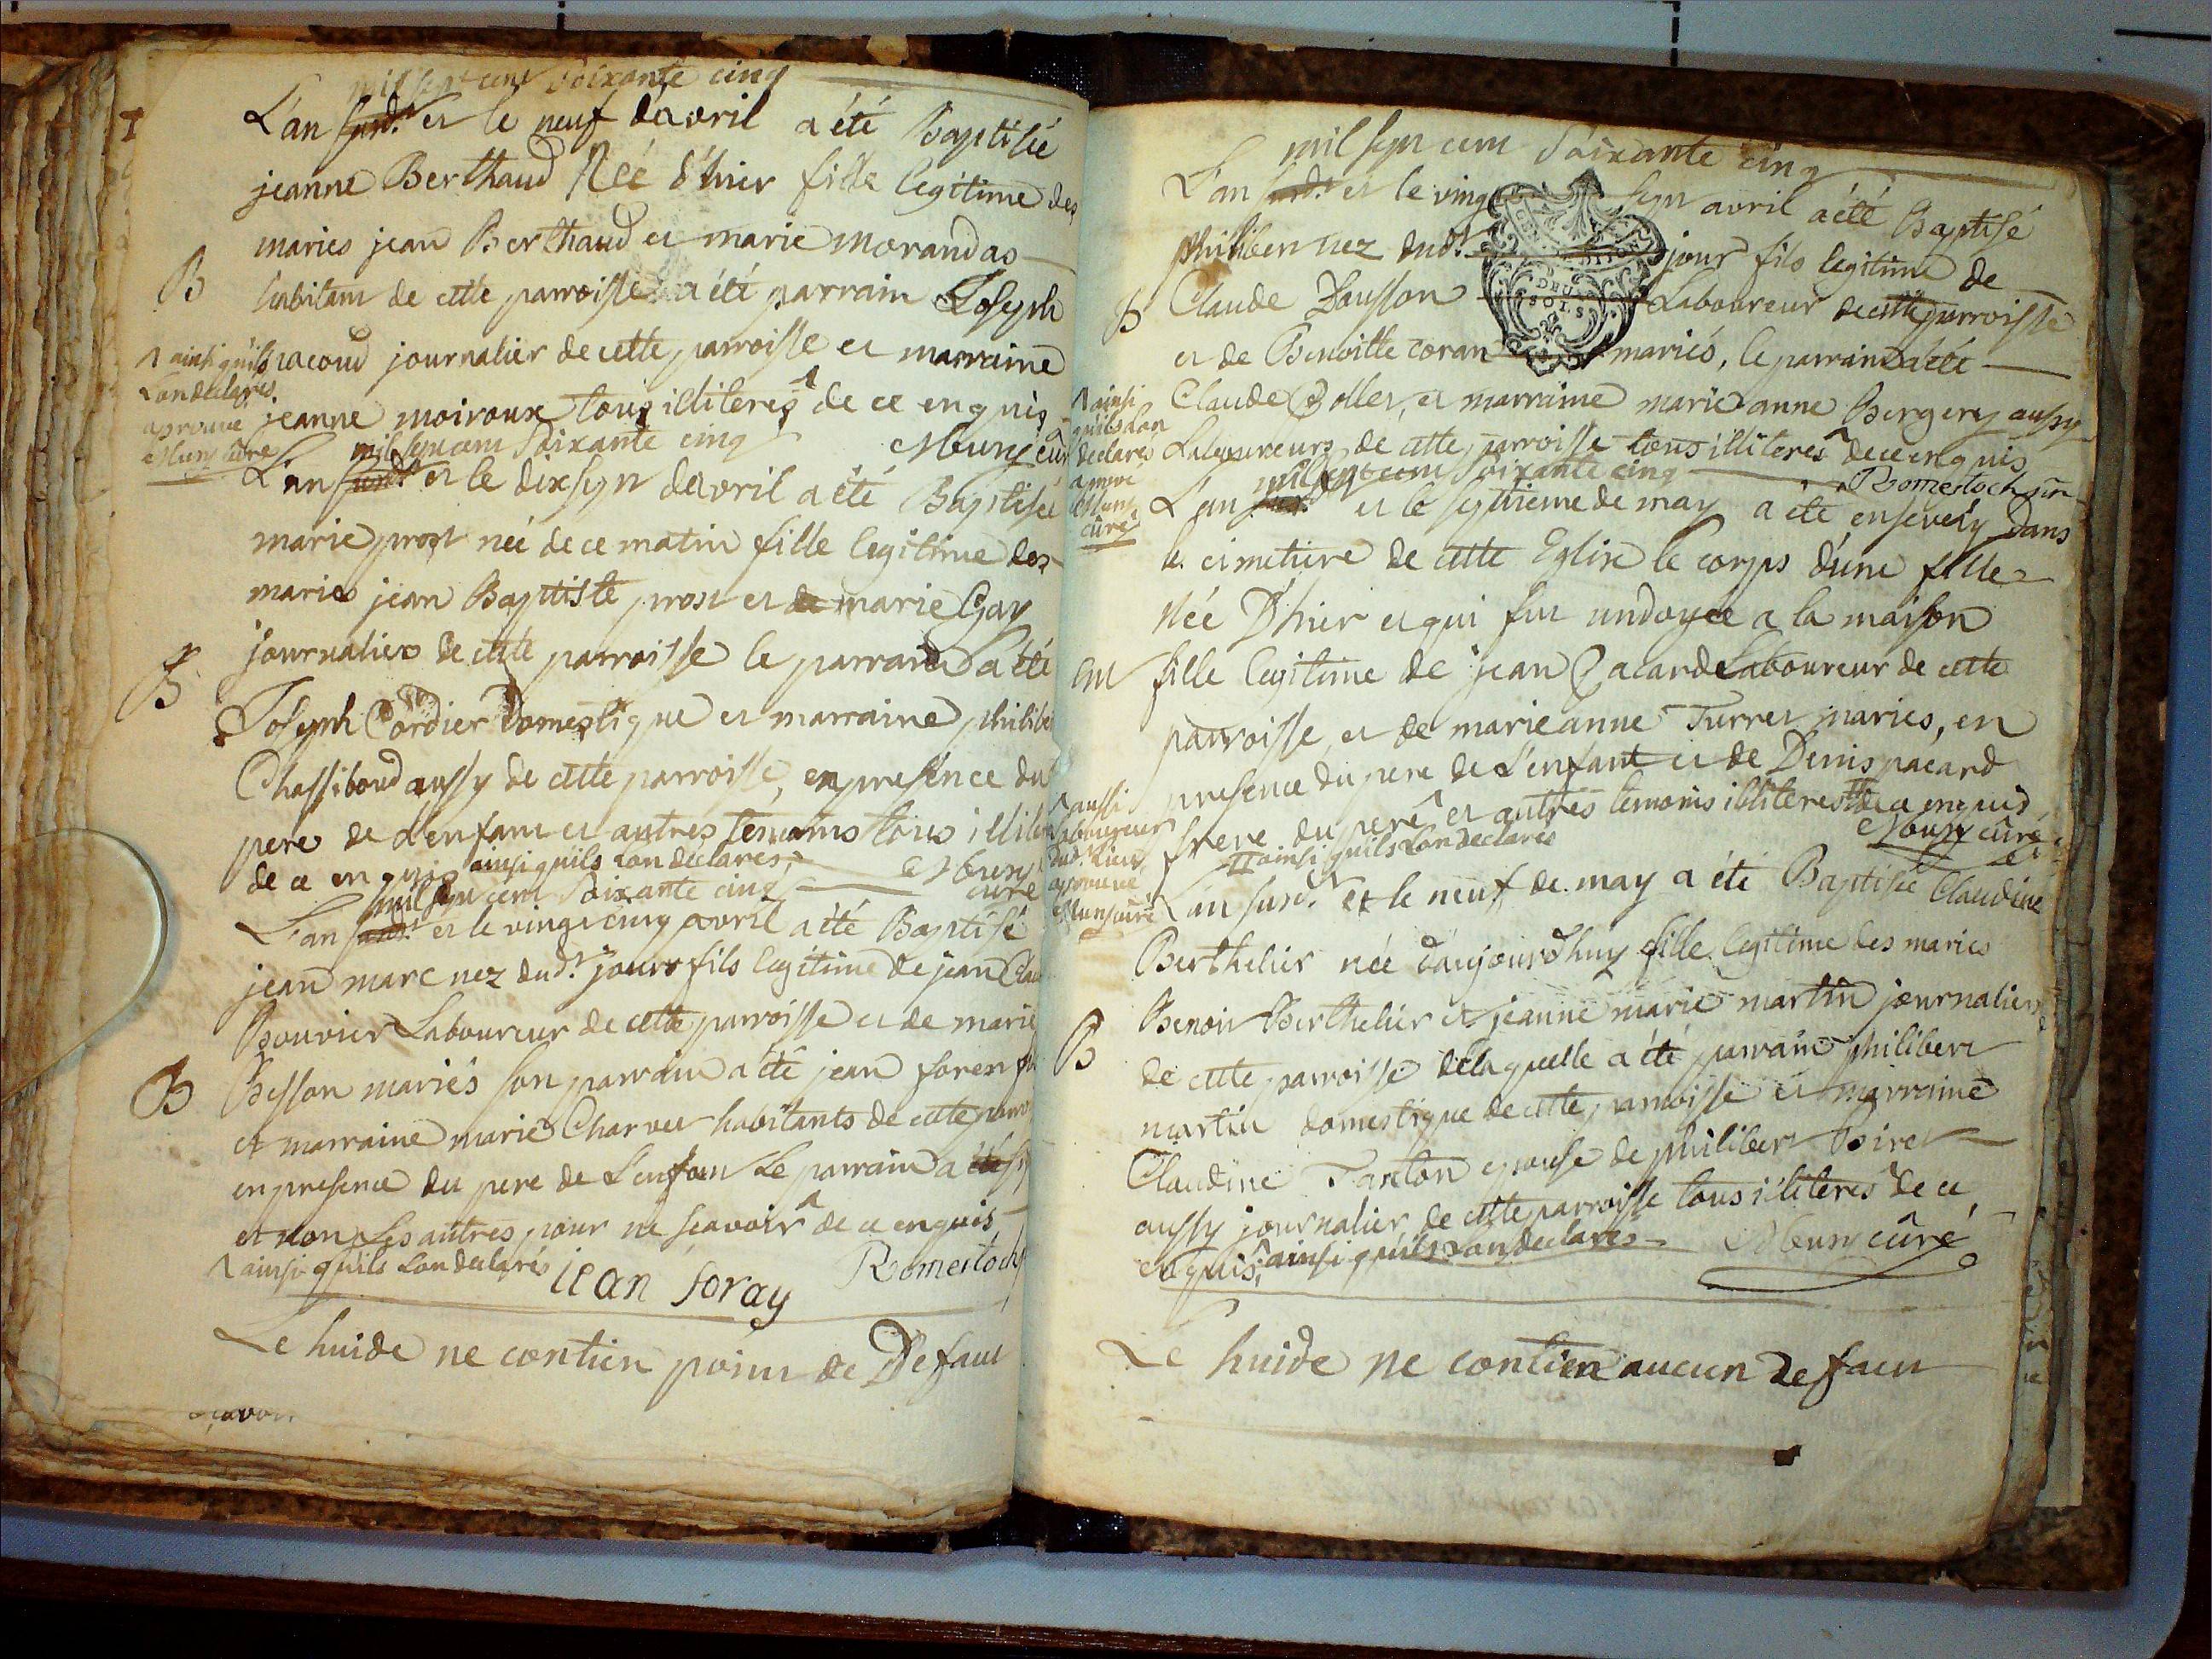 mil sept cent Soixante cinq
L'an susd.t et le neuf davril a été Baptisée
jeanne Berthaud Née d'hier fille legitime des
maries jean Berthaud et marie morandas
B
habitant de cette parroisse a été parrain Joseph
racoud journalier de cette parroisse et marraine
jeanne moiroux tous illiteres de ce enquis
ainsi quils
Lon declarés
aprouvé
Muny cûre
Mbuny cûr
mil sept cent Soixante cinq
L'an susd.t et le dix sept davril a été Baptisée
marie prost née de ce matin fille legitime des
maries jean Baptiste prost et de marie Gay
B
journalier de cette parroisse le parrain a été
Joseph Cordier Domestique et marraine philibe
Chassiboud aussy de cette parroisse, en presence du
pere de L'enfant et autres temoins tous illite
de ce enquis ainsi quils Lon declarés,
Mbuny cûre
mil sept cent Soixante cinq
L'an susd.t et le vingt cinq avril a été Baptisé
jean marc nez dud.t jour fils legitime de jean Clau
Bouvier Laboureur de cette parroisse et de marie
B
Besson mariés son parrain a été jean foren
et marraine marie Charvet habitants de cette parro
en presence du pere de L'enfant Le parrain a
et non Les autres pour ne scavoir de ce enquis
ainsi quils Lon declarés
jean foray
Romestoch
Le huide ne contien point de Defaut
mil sept cent Soixante cinq
L'an susd.t et le vingt sept avril a été Baptisé
philibert nez dud.t jour fils legitime de
B
Claude Dausson Laboureur de cette parroisse
et de Benoitte coran mariés, le parrain a été
Claude Bollet, et marraine marie anne Bergery aussy
Laboureurs de cette parroisse tous illiteres de ce enquis
ainsi
quils Lon
declarés
aprouvé
Muny
cûre
Romestoch
mil sept cent Soixante cinq
L'an susd.t et le septieme de may a été ensevely Dans
le cimetiere de cette Eglise le corps d'une fille
Née D'hier et qui fut undoyée a la maison
Ent
fille legitime de jean Pacard Laboureur de cette
parroisse, et de marie anne Turret maries, en
presence du pere de L'enfant et de Denis pacard
frere du pere et autres temoins illiteres de ce enquis
aussi
Laboureur
dud.t Lieu
aprouvé
Muny cûre
ainsi quils Lon declarés
Mbuny cûre
L'an susd.t et le neuf de may a été Baptisée Claudine
Berthelier née daujourdhuy fille legitime des maries
Benoit Berthelier et jeanne marie martin journaliers
B
de cette parroisse delaquelle a été parrain philibert
martin domestique de cette parroisse et marraine
Claudine Tanton epouse de philibert Biret
aussy journalier de cette parroisse tous illiteres de ce
enquis, ainsi quils Lon declarés
Mbuny cûré
Le huide ne contien aucun defaut